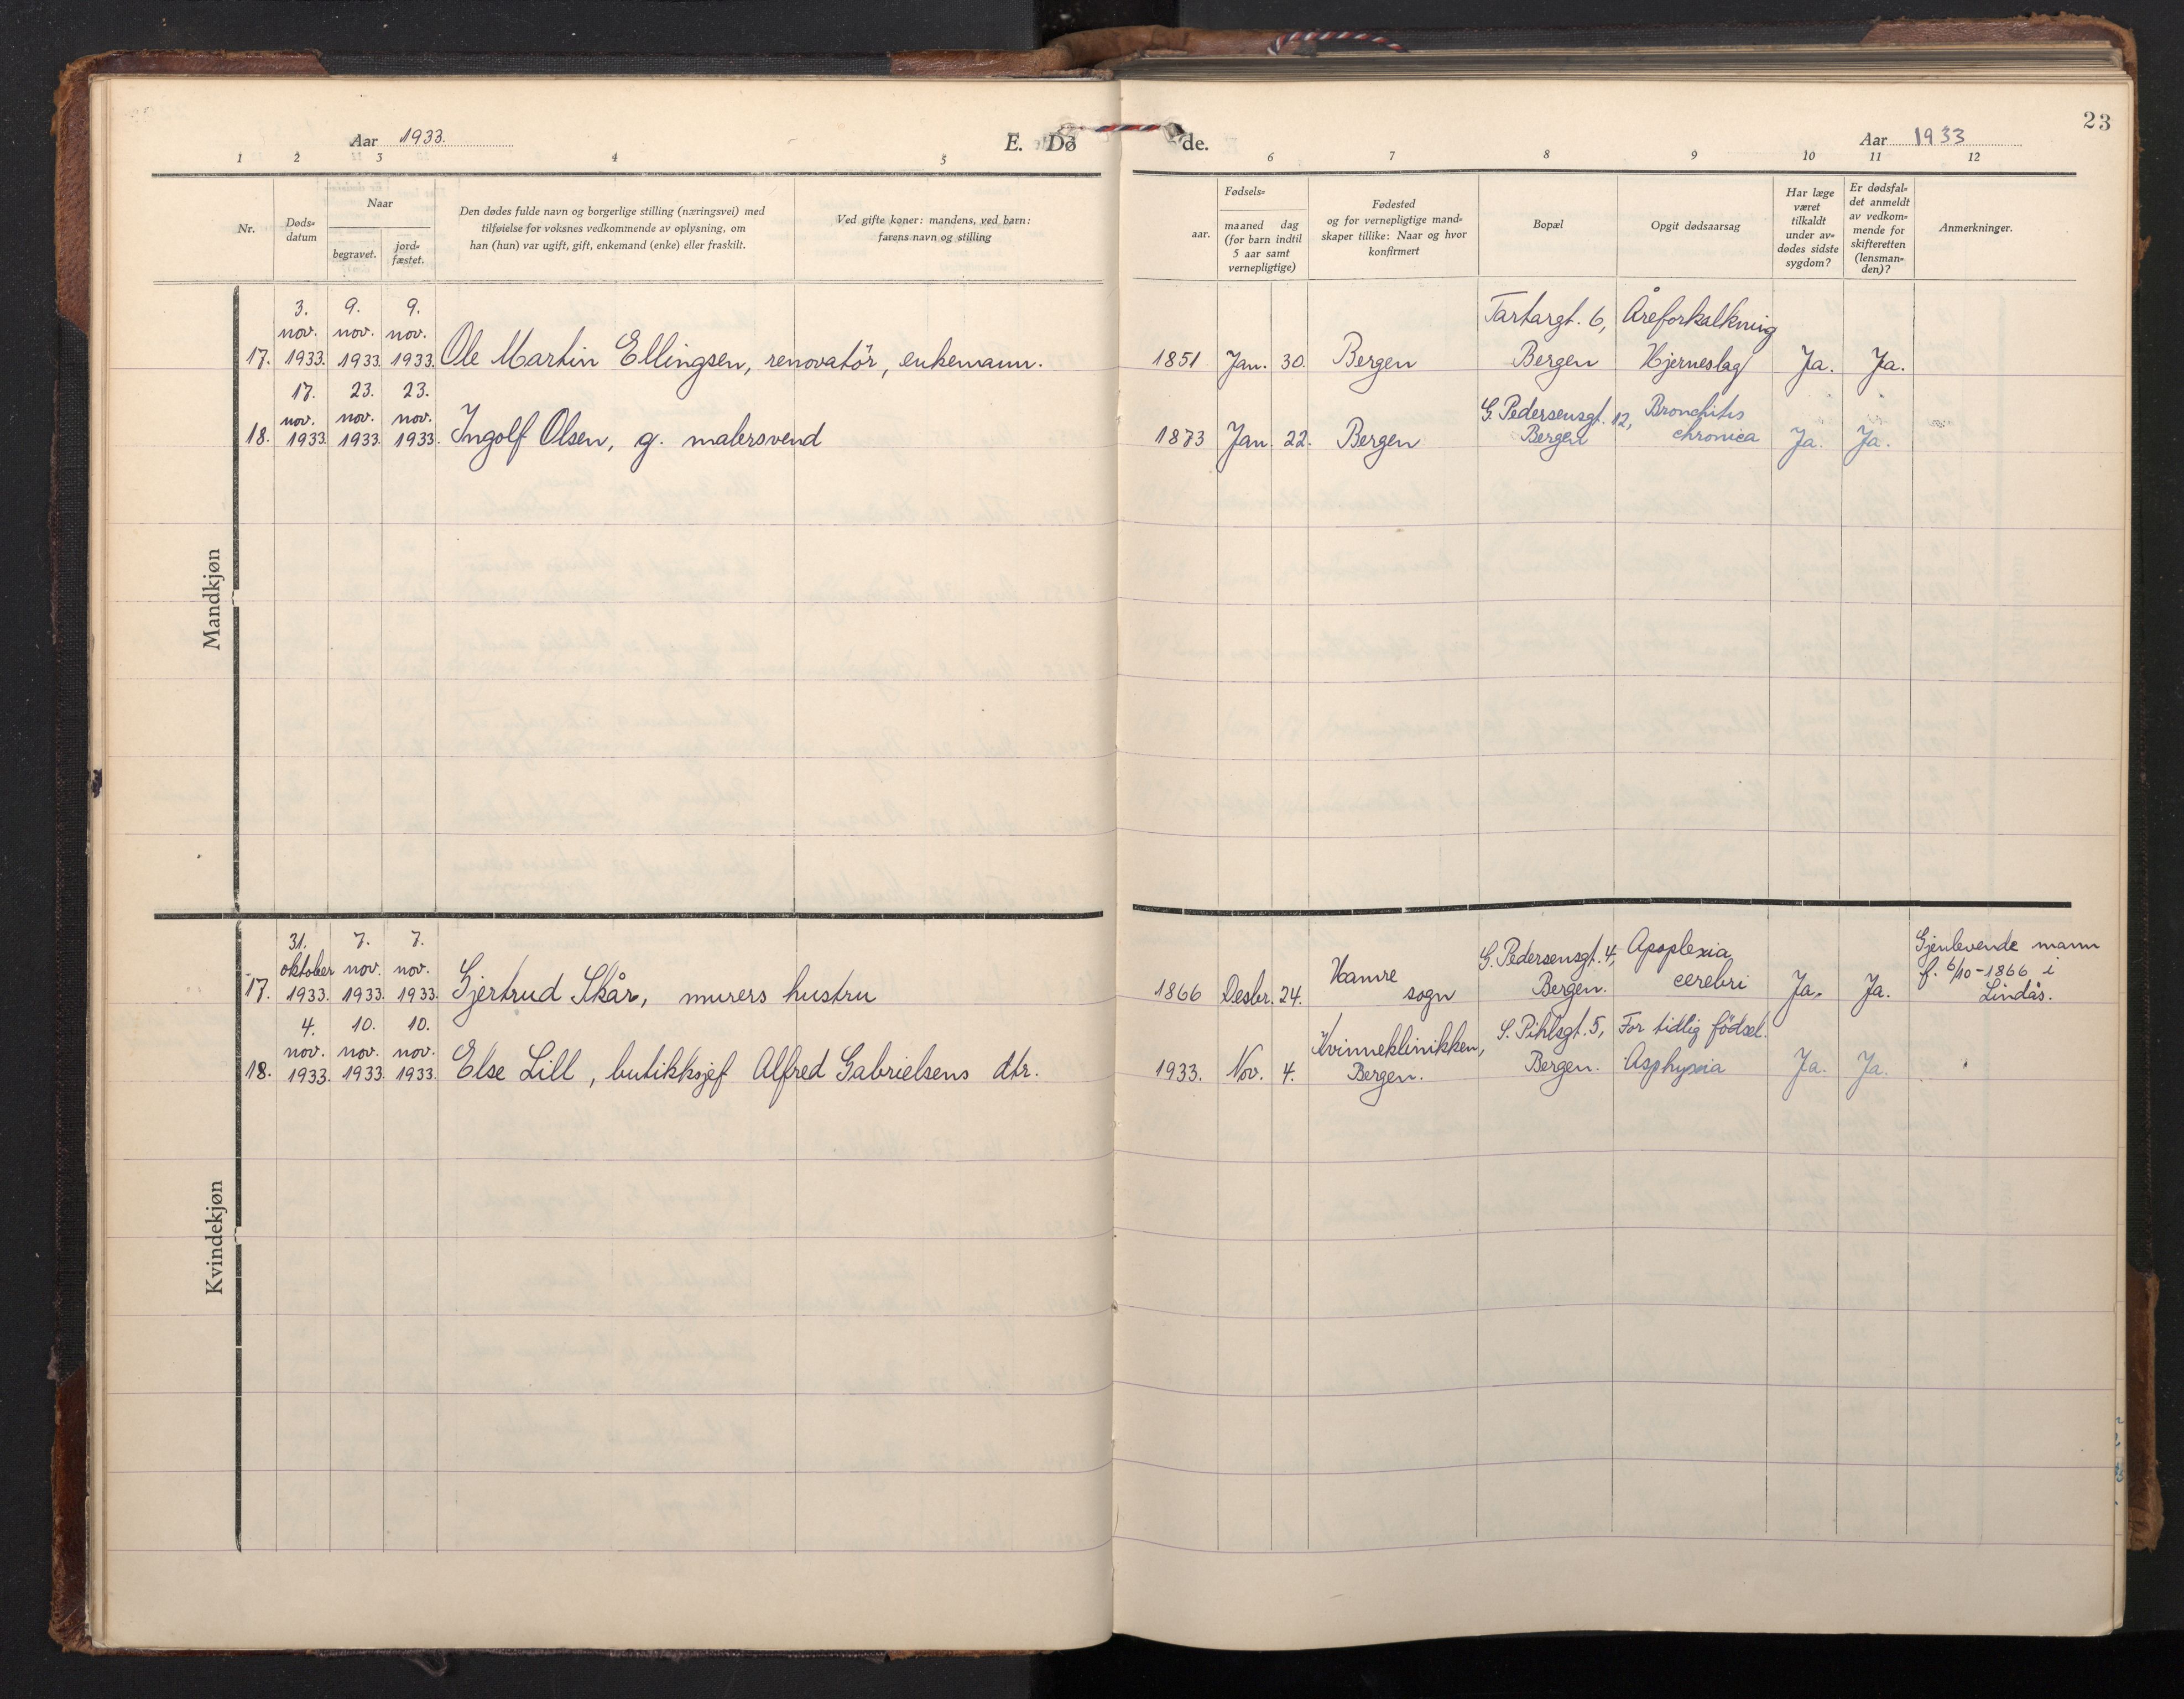 Aar 1933.
E. Dø de.
Aar 1933
23
1 2 3 4 5 6 7 8 9 10 11 12
Nr.
Døds-
datum
Naar
begravet.
jord-
fæstet.
Den dødes fulde navn og borgerlige stilling (næringsvei) med
tilføielse for voksnes vedkommende av oplysning, om
han (hun) var ugift, gift, enkemand (enke) eller fraskilt.
Ved gifte koner: mandens, ved barn:
farens navn og stilling
Fødsels-
aar.
maaned dag
(for barn indtil
5 aar samt
vernepligtige)
Fødested
og for vernepligtige mand-
skaper tillike: Naar og hvor
konfirmert
Bopæl
Opgit dødsaarsag
Har læge
været
tilkaldt
under av-
dødes sidste
sygdom?
Er dødsfal-
det anmeldt
av vedkom-
mende for
skifteretten
(lensman-
den)?
Anmerkninger.
Mandkjøn
3. 9. 9. Tartargt. 6, Åreforkalkning
nov. nov. nov.
17. 1933. 1933. 1933. Ole Martin Ellingsen, renovatör, enkemann. 1851 Jan. 30. Bergen Bergen Hjerneslag Ja. Ja.
17. 23. 23.
nov. nov. nov. G. Pedersensgt. 12, Bronchitis
18. 1933. 1933. 1933. Ingolf Olsen, g. malersvend 1873 Jan. 22. Bergen Bergen chronica Ja. Ja.
Kvindekjøn
31. 7. 7. G. Pedersensgt. 4, Apoplexia Gjenlevende mann
oktober nov. nov. Hamre f. 6/10-1866 i
17. 1933. 1933. 1933. Gjertrud Skår, murers hustru 1866 Desbr. 24. sogn Bergen. cerebri Ja. Ja. Lindås.
4. 10. 10. S. Pihlsgt. 5, For tidlig födsel.
nov. nov. nov. Kvinneklinikken,
18. 1933. 1933. 1933. Else Lill, butikksjef Alfred Gabrielsens dtr. 1933. Nov. 4. Bergen. Bergen. Asphyxia Ja. Ja.